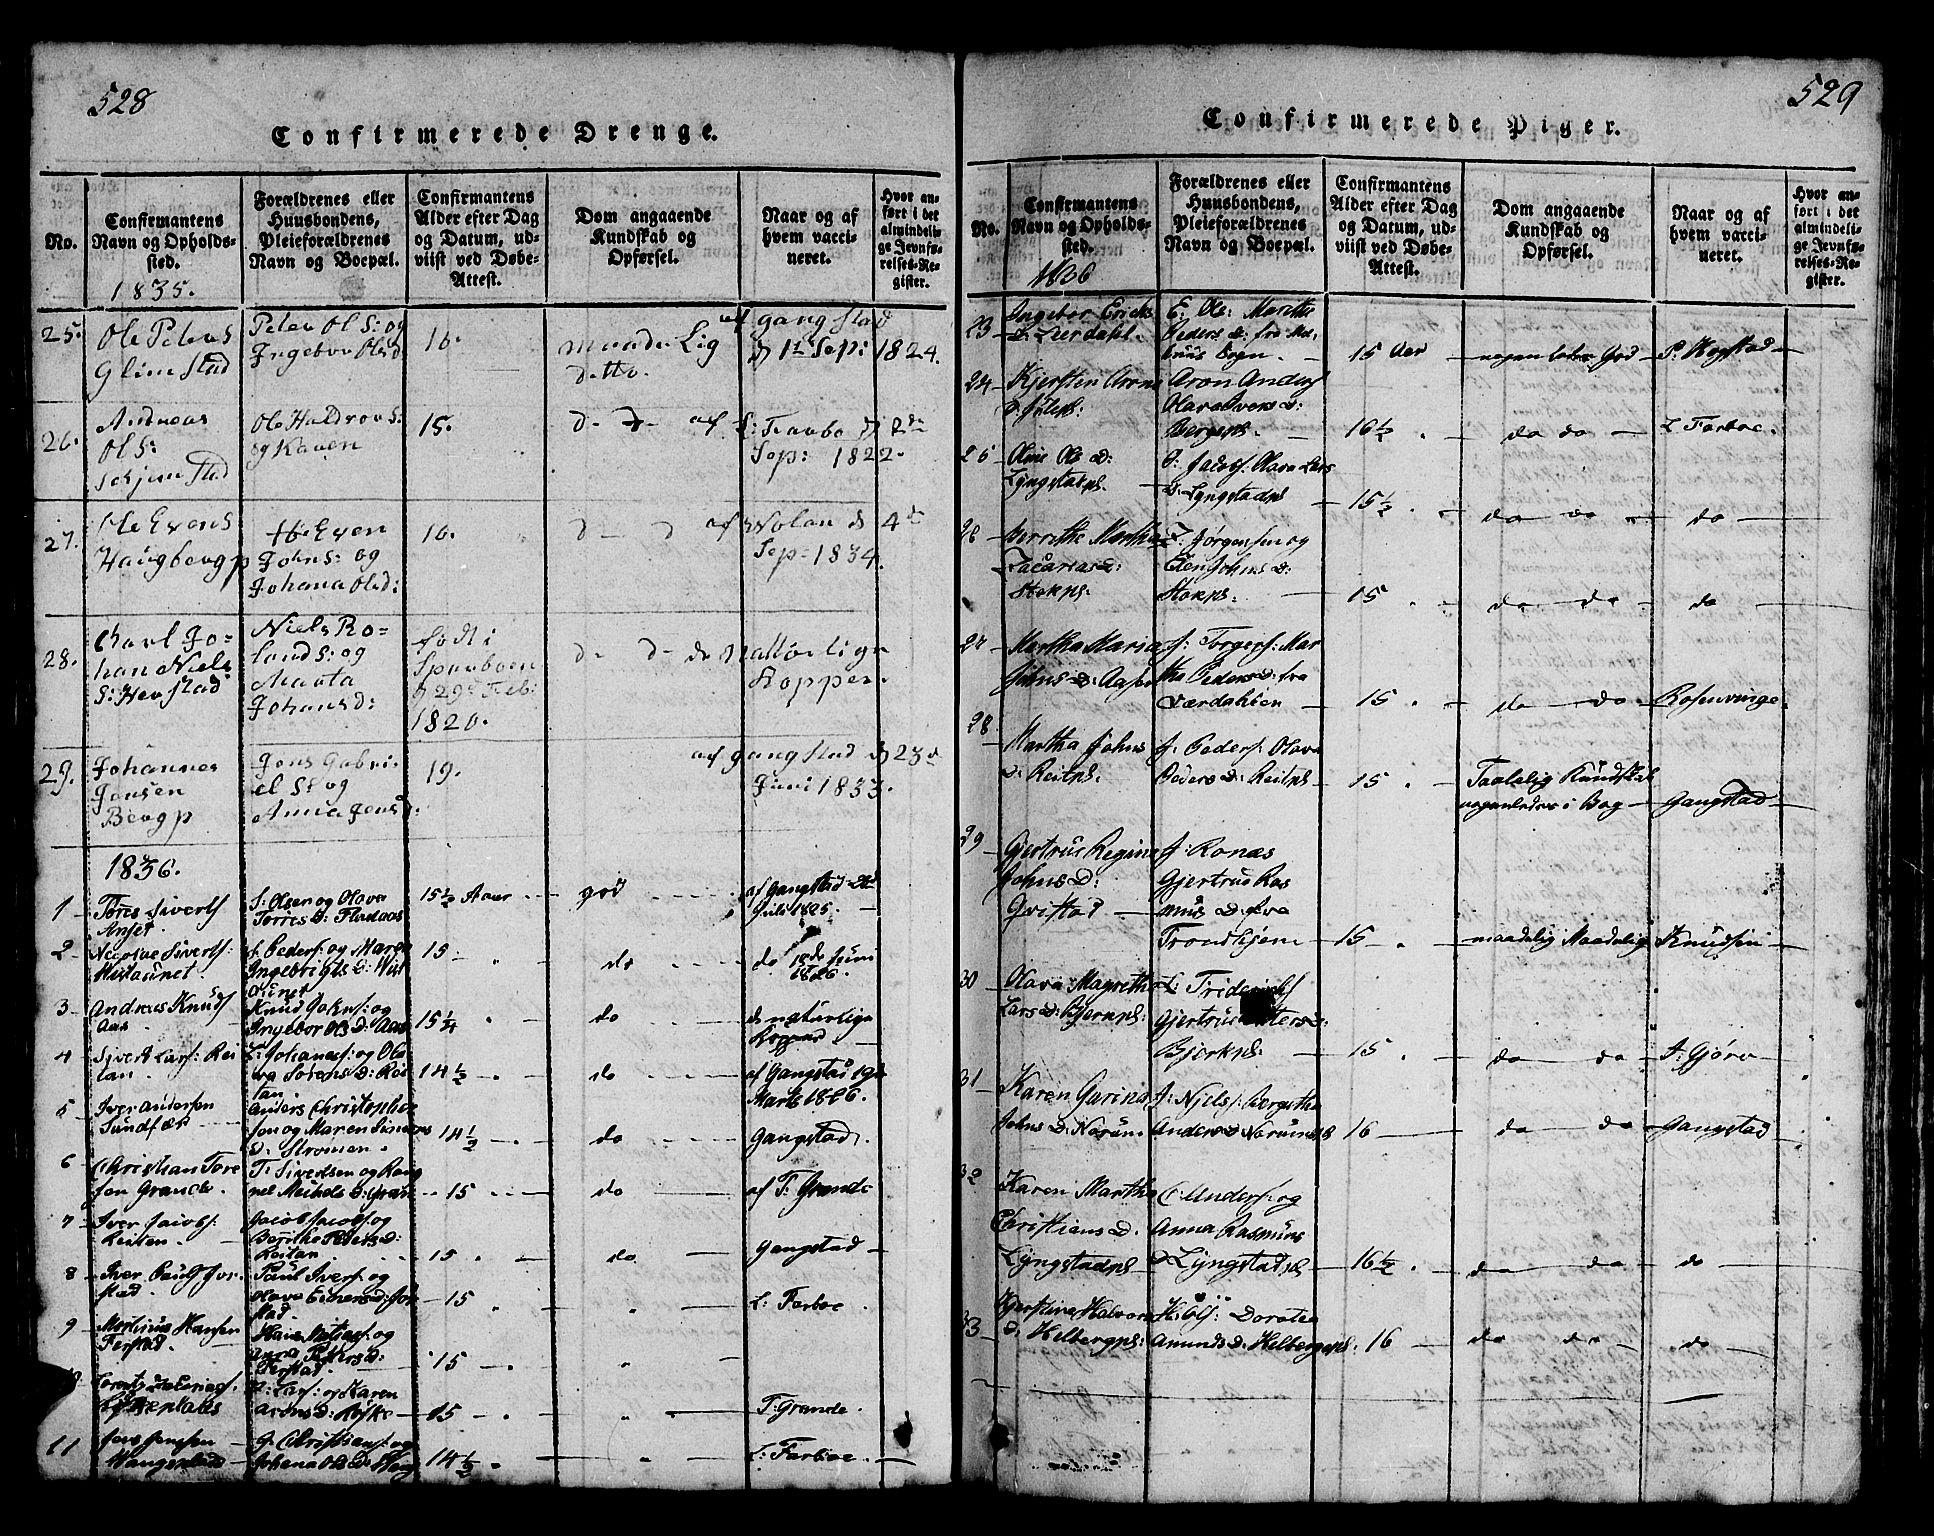 528
Confirmerede Drenge.
No.
Confirmantens
Navn og Opholds-
sted.
1835.
Forældrenes eller
Huusbondens,
Pleieforældrenes
Navn og Boepæl.
Confirmantens
Alder efter Dag
og Datum, ud-
viist ved Døbe-
Attest.
Dom angaaende
Kundskab og
Opførsel.
Naar og af
hvem vacci-
neret.
Hvor an-
ført i det
almindeli-
ge Jevnfø-
relses-Re-
gister.
25.
Ole Peters
Glimstad
Peter Ols: og
Ingebor Olsd
16.
maadeLig
ditto.
af gangstad
d 1t Sep: 1824.
26.
Andreas
Ols:
Schjerstad
Ole Haldvors:
og Karen
15.
d- d-
af L: Faabo d 2de
Sep: 1822.
27.
Ole Evens
Haugbergp
Even
Johns: og
Johana Olsd:
16.
d- d
af Nolan d 4de
Sep: 1834.
28.
Charl Jo-
han Niels
S: Hevstad
Niels Ro-
lands: og
Marta
Johansd:
født i
Sparboen
d 29de Feb:
1820.
d- d- de
Natturlige
Kopper.
29.
Johannes
Jensen
Bergp
Jens Gabri-
el S: og
Anna Jensd.
19.
af gangstad d 23de
Juni 1833.
1836.
1
Tøres Siverts
S: Olsen og Olava
Torres D: Fladaas
15 1/2 Aaer
god
af Gangstad
Juli 1825
2
Nicolae Sivertsf:
Mistaunet.
S: Pedersf: og Maren
Ingebrigts D: Mist
aunet
15
do
do 18de Juni
1826.
3
Andreas Knudsf
Aas
Knud Johnsf: og
Ingebor Ols D: Aas
15 1/4
do
de naturlige
Kopper
4
Sivert Larsf: Rei
tan
L: Johanesf: og Ola
va Sørens D: Rei
tan
14 1/2
do
af Gangstad 19de
Marts 1826.
5
Iver Andersen
Sundfær
Anders Christophers
sen og Maren Simons
D: Stromen
14 1/2
do
Gangstad.
6
Christian Tore
sen Grande.
T: Sivertsen og Rang
nel Michels D: Gran
15
do
af T: Grande
7
Iver Jacobsf:
Leiten
Jacob Jacobsf: og
Beritha Peders D:
Leitan
15
do
Gangstad
8
Iver Paulsf Jør
stad
Paul Iversf: og
Olava Einers D: Jør
stad
15
L: Farboe
9
Martinus Hansen
Ferstad.
Hans Matiasf: og
Anna Peters D:
Ferstad
15
L: Larsf: og Karen
Arons D: Røske
15
T: Grande.
11
Jens Jensen
G: Christiansf: og
Johana Ols D: Hang
14 1/2
L: Farboe
529
Confirmerede Piger.
No.
Confirmantens
Navn og Opholds-
sted.
1836
Forældrenes eller
Huusbondens,
Pleieforældrenes
Navn og Boepæl.
Confirmantens
Alder efter Dag
og Datum, ud-
viist ved Døbe-
Attest.
Dom angaaende
Kundskab og
Opførsel.
Naar og af
hvem vacci-
neret.
Hvor an-
ført i det
almindeli-
ge Jevnfø-
relses-Re-
gister.
23
Ingebor Ericks
D: Leerdahl.
E: Ols: Marithe
Peders D: fra
Sogn.
15 Aar
nogenledes God
P: Høystad
24
Kjersten Arons
D:
Aron Andersf
Olava Ivers D:
Bergspl.
16 1/2
do do
L Farboe.
25
Oline Ols D:
Lyngstadpl.
O: Jacobsf: Olava Lars
D: Lyngstadpl
15 1/2
do do
do
26
Berrethe Martha
Zacarias D:
Stokpl:
Z: Jørgensen og
Elen Johns D:
Stokpl:
15
do do
do
27
Martha Maria
Johns D: Aasen
J: Torgersf: Mar
tha Peders D: fra
Værdalsen
15
do do
Rosenvinge
28
Martha Johns
D: Reitpl.
J: Pedersf: Olava
Peders D: Reitpl
15
Taalelig Kundskab
nogenledes i Bog
Gangstad
29
Gjertrue Regina
Johns D:
Qvistad
J: Ronæs
Gjertrue Ras
mus D: fra
Trondhjem
15
maadelig Maadelig
Knudsen
30
Olava Magretha
Lars D: Bjerkpl:
L: Friderichsf
Gjertrue Peters D:
Bjerkpl:
15
do do
A: Gjørv
31
Karen Gurina
Johns D: Norum
J: Njelsf: Bergitha
Anders D: Norumspl
16
do do
Gangstad
32
Karen Martha
Christians D.
Lyngstadpl
C: Andersf: og
Anna Rasmus
D: Lyngstadspl
16 1/2
do do
do
33
Kjerstina Halvors
D: Helbergpl:
H: Olsf: Dorotea
Amunds D: Helbergspl.
16
do do
do